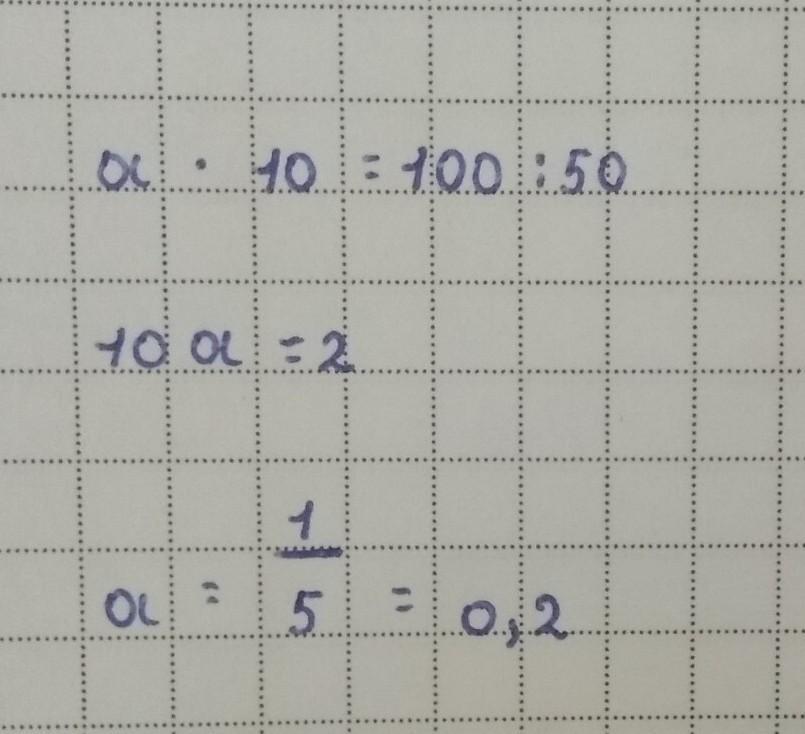 a · 10 = 100 : 50
10 a = 2
a = 1/5 = 0,2